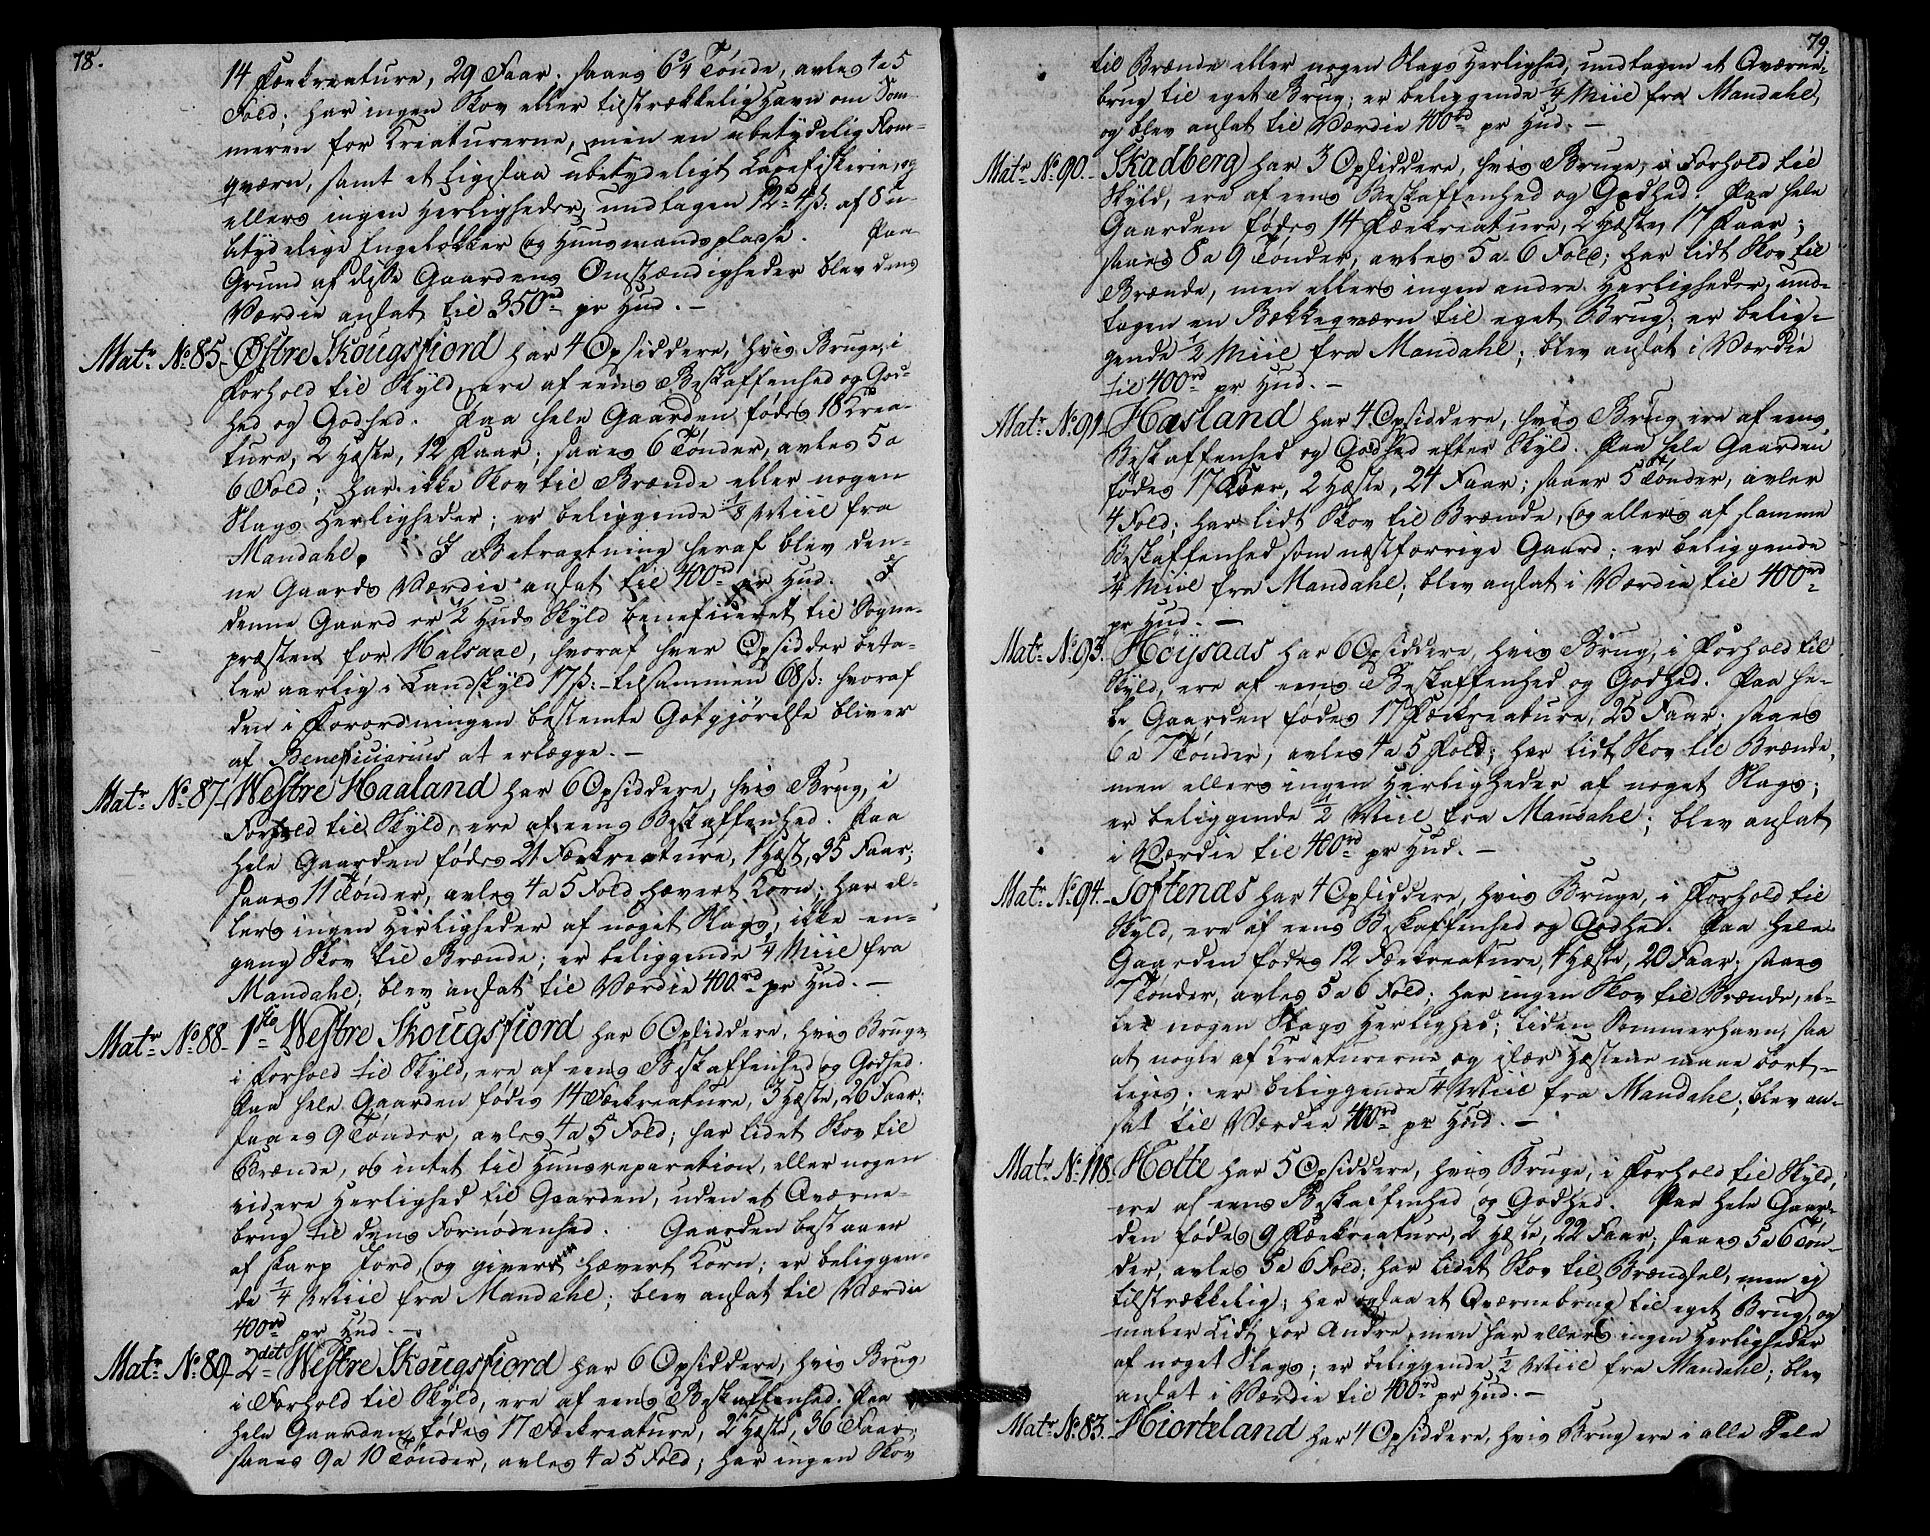 78.
14 Fæekreature, 29 Faar; saaes 6 3/4 Tønde, avles 4 a 5
Fold; har ingen Skov eller tilstrækkelig Havn om Som-
meren for Kreaturerne, men en ubetydelig Flom-
qværn, samt et ligesaa ubetydeligt Laxefiskerie, og
ellers ingen Herligheder, undtagen 12 4 ß: af 8 u-
betydelige Engeløkker og Huusmandspladse. Paa
Grund af disse Gaardens Omstændigheder blev dens
Værdie ansat til 350rd pr Hud. –
Matr. No. 85. Østre Skougsfiord har 4 Opsiddere, hvis Bruge, i
Forhold til Skyld, ere af eens Beskaffenhed og God-
hed og Godhed. Paa hele Gaarden fødes 18 Krea-
ture, 2 Hæste, 12 Faar; saaes 6 Tønder, avles 5 a
6 Fold; har ikke Skov til Brænde eller nogen
Slags Herligheder; er beliggende 1/8 Miil fra
Mandahl. I Betragtning heraf blev den-
ne Gaards Værdie ansat til 400rd pr Hud. I
denne Gaard er 1/2 Huds Skyld beneficeret til Sogne-
præsten for Halsaae, hvoraf hver Opsidder beta-
ler aarlig i Landskyld 17 ß: – tilsammen 68 ß: hvoraf
den i Forordningen bestemte Gotgjørelse bliver
af Beneficiarius at erlægge. –
Matr. No. 87. Westre Haaland har 6 Opsiddere, hvis Brug, i
Forhold til Skyld, ere af eens Beskaffenhed. Paa
hele Gaarden fødes 21 Fæekreature, 1 Hæst, 35 Faar;
saaes 11 Tønder, avles 4 a 5 Fold hævert Korn; har el-
lers ingen Herligheder af noget Slags, ikke en-
gang Skov til Brænde; er beliggende 1/4 Miil fra
Mandahl; blev ansat til Værdie 400rd pr Hud. –
Matr. No. 88. 1ste Westre Skougsfiord har 6 Opsiddere, hvis Bruge
i Forhold til Skyld, ere af eens Beskaffenhed og Godhed.
Paa hele Gaarden fødes 14 Fæekreature, 3 Hæste, 26 Faar;
saaes 9 Tønder, avles 4 a 5 Fold; har lidet Skov til
Brænde, og intet til Huusreparation, eller nogen
videre Herlighed til Gaarden, uden et Qværne-
brug til dens Fornødenhed. Gaarden bestaaer
af skarp Jord, og giver hævert Korn; er beliggen-
de 1/4 Miil fra Mandahl; blev ansat til Værdie
400rd pr Hud. –
Matr. No. 89. 2det Westre Skougsfiord har 6 Opsiddere, hvis Brug
i Forhold til Skyld, ere af eens Beskaffenhed. Paa
hele Gaarden fødes 17 Fæekreature, 2 Hæste, 36 Faar;
saaes 9 a 10 Tønder, avles 4 a 5 Fold; har ingen Skov
79.
til Brænde eller nogen Slags Herlighed, undtagen et Qværne-
brug til eget Brug; er beliggende 1/4 Miil fra Mandahl,
og blev ansat til Værdie 400rd pr Hud. –
Matr. No. 90. Skadberg har 3 Opsiddere, hvis Bruge, i Forhold til
Skyld, ere af eens Beskaffenhed og Godhed. Paa hele
Gaarden fødes 14 Fæekreature, 2 Hæste, 17 Faar;
saaes 8 a 9 Tønder, avles 5 a 6 Fold; har lidt Skov til
Brænde, men ellers ingen andre Herligheder, und-
tagen en Bækkeqværn til eget Brug; er belig-
gende 1/2 Miil fra Mandahl; blev ansat i Værdie
til 400rd pr Hud. –
Matr. No. 91. Hasland har 4 Opsiddere, hvis Brug ere af eens
Beskaffenhed og Godhed efter Skyld. Paa hele Gaarden
fødes 17 Køer, 2 Hæste, 24 Faar; saaer 5 Tønder, avler
4 Fold; har lidt Skov til Brænde, og ellers af samme
Beskaffenhed som næstforrige Gaard; er beliggende
1/4 Miil fra Mandahl; blev ansat i Værdie til 400rd
pr Hud. –
Matr. No. 93. Høysaas har 6 Opsiddere, hvis Brug, i Forhold til
Skyld, ere af eens Beskaffenhed og Godhed. Paa he-
le Gaarden fødes 17 Fæekreature, 25 Faar; saaes
6 a 7 Tønder, avles 4 a 5 Fold; har lidt Skov til Brænde,
men ellers ingen Herligheder af noget Slags;
er beliggende 1/2 Miil fra Mandahl; blev ansat
i Værdie til 400rd pr Hud. –
Matr. No. 94. Toftenæs har 4 Opsiddere, hvis Bruge, i Forhold til
Skyld, ere af eens Beskaffenhed og Godhed. Paa hele
Gaarden fødes 12 Fæekreature, 4 Hæste, 20 Faar; saaes
7 Tønder, avles 5 a 6 Fold; har ingen Skov til Brænde, el-
ler nogen Slags Herlighed; liden Sommerhavn, saa
at nogle af Kreaturerne og især Hæstene maae bort-
leies; er beliggende 1/4 Miil fra Mandahl; blev an-
sat til Værdie 400rd pr Hud. –
Matr. No. 118. Holte har 5 Opsiddere, hvis Bruge, i Forhold til Skyld,
ere af eens Beskaffenhed og Godhed. Paa hele Gaar-
den fødes 9 Fæekreature, 2 Hæste, 22 Faar; saaes 5 a 6 Tøn-
der, avles 5 a 6 Fold; har lidet Skov til Brændsel, men ey
tilstrækkelig; har ogsaa et Qværnebrug til eget Brug, og
maler lidt for Andre, men har ellers ingen Herligheder
af noget Slags; er beliggende 1/2 Miil fra Mandahl; blev
ansat i Værdie til 400rd pr Hud. –
Matr. No. 83. Hiorteland har 4 Opsiddere, hvis Brug ere i alle Dele